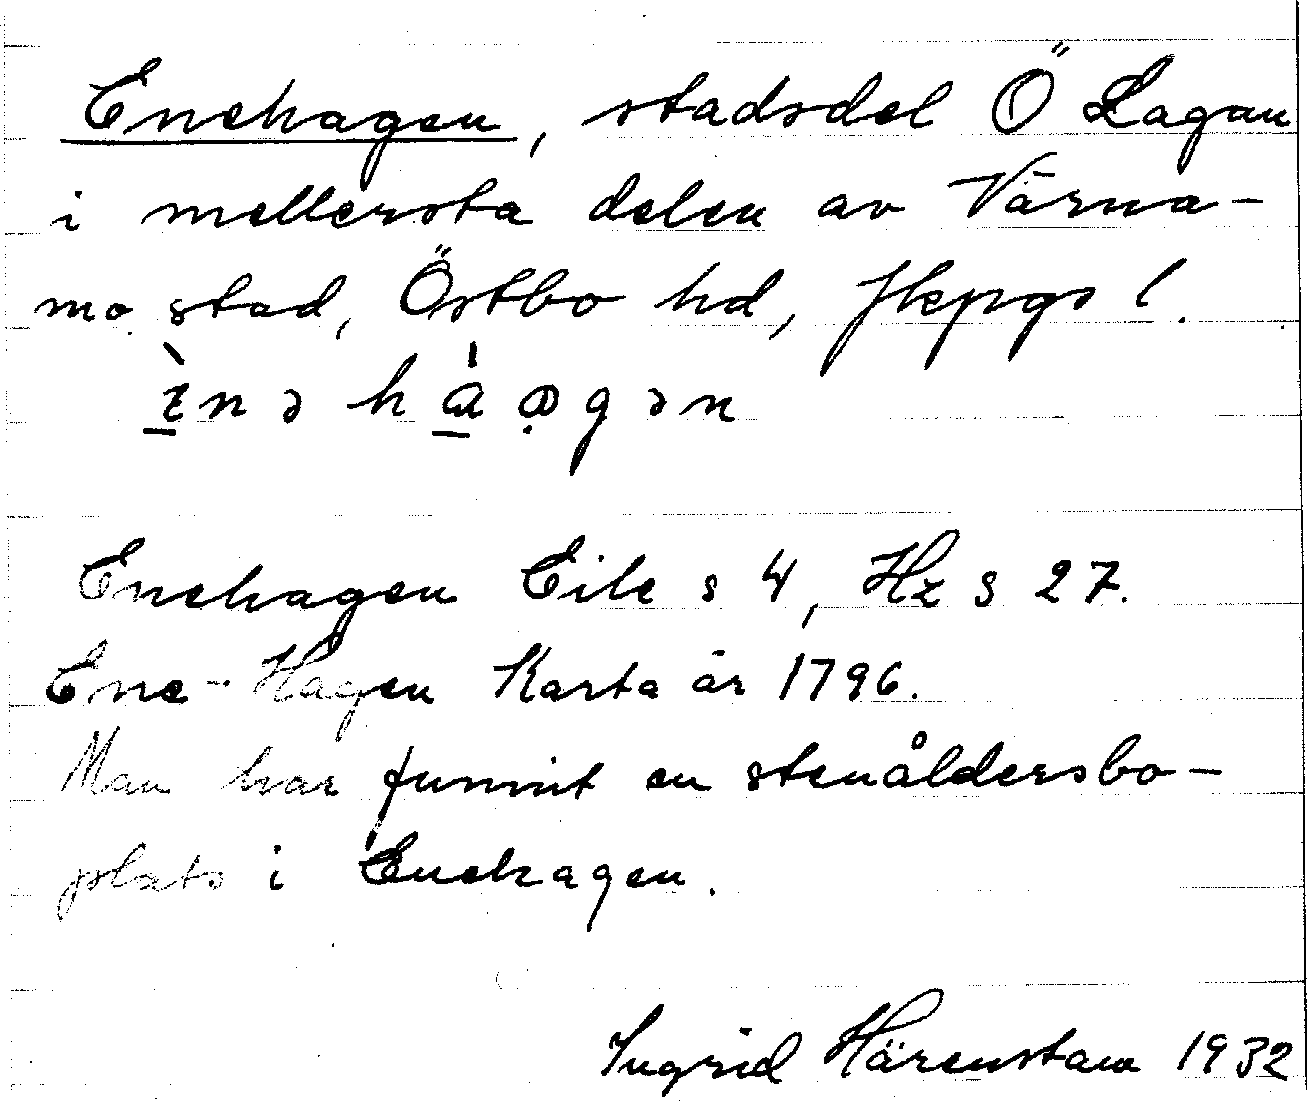 Enehagen, stadsdel Ö Lagan
i mellersta delen av Värna-
mo stad, Östbo hd, Jkpgs l.
Enehagen Eile s 4, Hz s 27.
Ene-Hagen Karta år 1796.
Man har funnit en stenåldersbo-
plats i Enehagen.
Ingrid Härenstam 1932